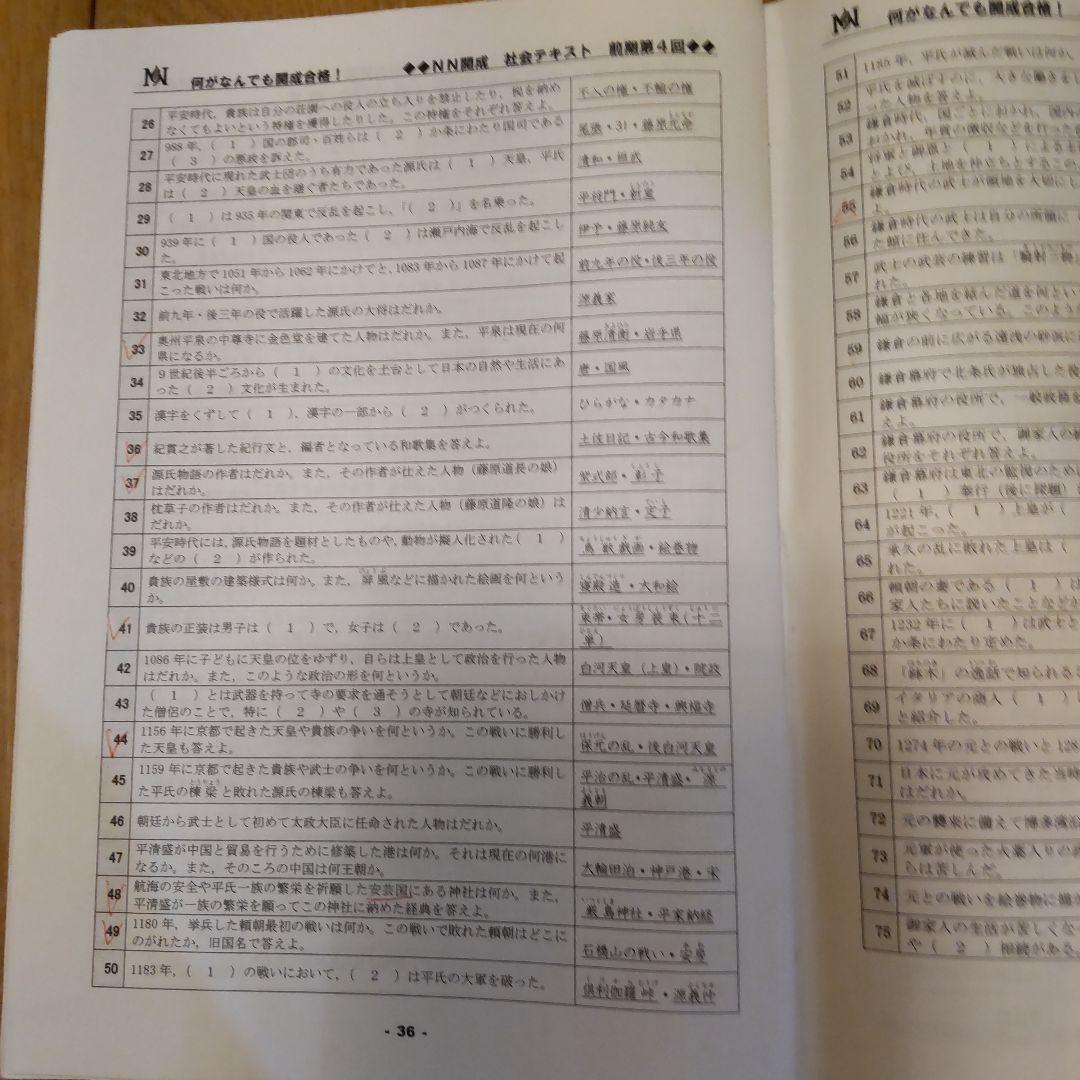 何がなんでも開成合格！
◆◆NN開成 社会テキスト 前期第4回◆◆
26 平安時代，貴族は自分の荘園への役人の立ち入りを禁止したり，税を納め
なくてもよいという特権を獲得したりした。この特権をそれぞれ答えよ。
不入の権・不輸の権
27 988年，（ 1 ）国の郡司・百姓らは（ 2 ）か条にわたり国司である
（ 3 ）の悪政を訴えた。
尾張・31・藤原元命
28 平安時代に現れた武士団のうち有力であった源氏は（ 1 ）天皇，平氏
は（ 2 ）天皇の血を継ぐ者たちであった。
清和・桓武
29 （ 1 ）は935年の関東で反乱を起こし，「（ 2 ）」を名乗った。
平将門・新皇
30 939年に（ 1 ）国の役人であった（ 2 ）は瀬戸内海で反乱を起こし
た。
伊予・藤原純友
31 東北地方で1051年から1062年にかけてと，1083年から1087年にかけて起
こった戦いは何か。
前九年の役・後三年の役
32 前九年・後三年の役で活躍した源氏の大将はだれか。
源義家
33 奥州平泉の中尊寺に金色堂を建てた人物はだれか。また，平泉は現在の何
県になるか。
藤原清衡・岩手県
34 9世紀後半ごろから（ 1 ）の文化を土台として日本の自然や生活にあ
った（ 2 ）文化が生まれた。
唐・国風
35 漢字をくずして（ 1 ），漢字の一部から（ 2 ）がつくられた。
ひらがな・カタカナ
36 紀貫之が著した紀行文と，編者となっている和歌集を答えよ。
土佐日記・古今和歌集
37 源氏物語の作者はだれか。また，その作者が仕えた人物（藤原道長の娘）
はだれか。
紫式部・彰子
38 枕草子の作者はだれか。また，その作者が仕えた人物（藤原道隆の娘）は
だれか。
清少納言・定子
39 平安時代には，源氏物語を題材としたものや，動物が擬人化された（ 1 ）
などの（ 2 ）が作られた。
鳥獣戯画・絵巻物
40 貴族の屋敷の建築様式は何か。また，屏風などに描かれた絵画を何という
か。
寝殿造・大和絵
41 貴族の正装は男子は（ 1 ）で，女子は（ 2 ）であった。
束帯・女房装束(十二
単)
42 1086年に子どもに天皇の位をゆずり，自らは上皇として政治を行った人物
はだれか。また，このような政治の形を何というか。
白河天皇（上皇）・院政
43 （ 1 ）とは武器を持って寺の要求を通そうとして朝廷などにおしかけ
た僧侶のことで，特に（ 2 ）や（ 3 ）の寺が知られている。
僧兵・延暦寺・興福寺
44 1156年に京都で起きた天皇や貴族の争いを何というか。この戦いに勝利し
た天皇も答えよ。
保元の乱・後白河天皇
45 1159年に京都で起きた貴族や武士の争いを何というか。この戦いに勝利し
た平氏の棟梁と敗れた源氏の棟梁も答えよ。
平治の乱・平清盛・源
義朝
46 朝廷から武士として初めて太政大臣に任命された人物はだれか。
平清盛
47 平清盛が中国と貿易を行うために修築した港は何か。それは現在の何港に
なるか。また，そのころの中国は何王朝か。
大輪田泊・神戸港・宋
48 航海の安全や平氏一族の繁栄を祈願した安芸国にある神社は何か。また，
平清盛が一族の繁栄を願ってこの神社に納めた経典を答えよ。
厳島神社・平家納経
49 1180年，挙兵した頼朝最初の戦いは何か。この戦いで敗れた頼朝はどこに
のがれたか，旧国名で答えよ。
石橋山の戦い・安房
50 1183年，（ 1 ）の戦いにおいて，（ 2 ）は平氏の大軍を破った。
倶利伽羅峠・源義仲
- 36 -
何がなんでも開成合格！
51 1185年，平氏が滅んだ戦いは何か。
52 平氏を滅ぼすのに，大きな働きをし
った人物を答えよ。
53 鎌倉時代，国ごとにおかれ，国内の
おかれ，年貢の徴収などを行った
54 将軍と御恩と（ 1 ）による主
とよび，土地を仲立ちとするこの
55 鎌倉時代の武士が領地を大切にし
よ。
56 鎌倉時代の武士は自分の所領に（
た館に住んできた。
57 武士の武芸の練習は「騎射三物」
れた。
58 鎌倉と各地を結んだ道を何という
幅が狭くなっている，このような
59 鎌倉の前に広がる遠浅の砂浜に
60 鎌倉幕府で北条氏が独占した役
61 鎌倉幕府の役所で，一般政務を
えよ。
62 鎌倉幕府の役所で，御家人の
役所をそれぞれ答えよ。
63 鎌倉幕府は東北の監視のため
（ 1 ）奉行（後に探題）
64 1221年，（ 1 ）上皇が（
が起こった。
65 承久の乱に敗れた上皇は（
れた。
66 頼朝の妻である（ 1 ）は
家人たちに説いたことなどが
67 1232年に（ 1 ）は武士と
か条にわたり定めた。
68 「鉢木」の逸話で知られる
69 イタリアの商人（ 1 ）
と紹介した。
70 1274年の元との戦いと128
71 日本に元が攻めてきた当時
はだれか。
72 元の襲来に備えて博多湾沿
73 元軍が使った火薬入りの武
らは苦しんだ。
74 元との戦いを絵巻物に描か
75 御家人の生活が苦しくな
や（ 2 ）相続がある。